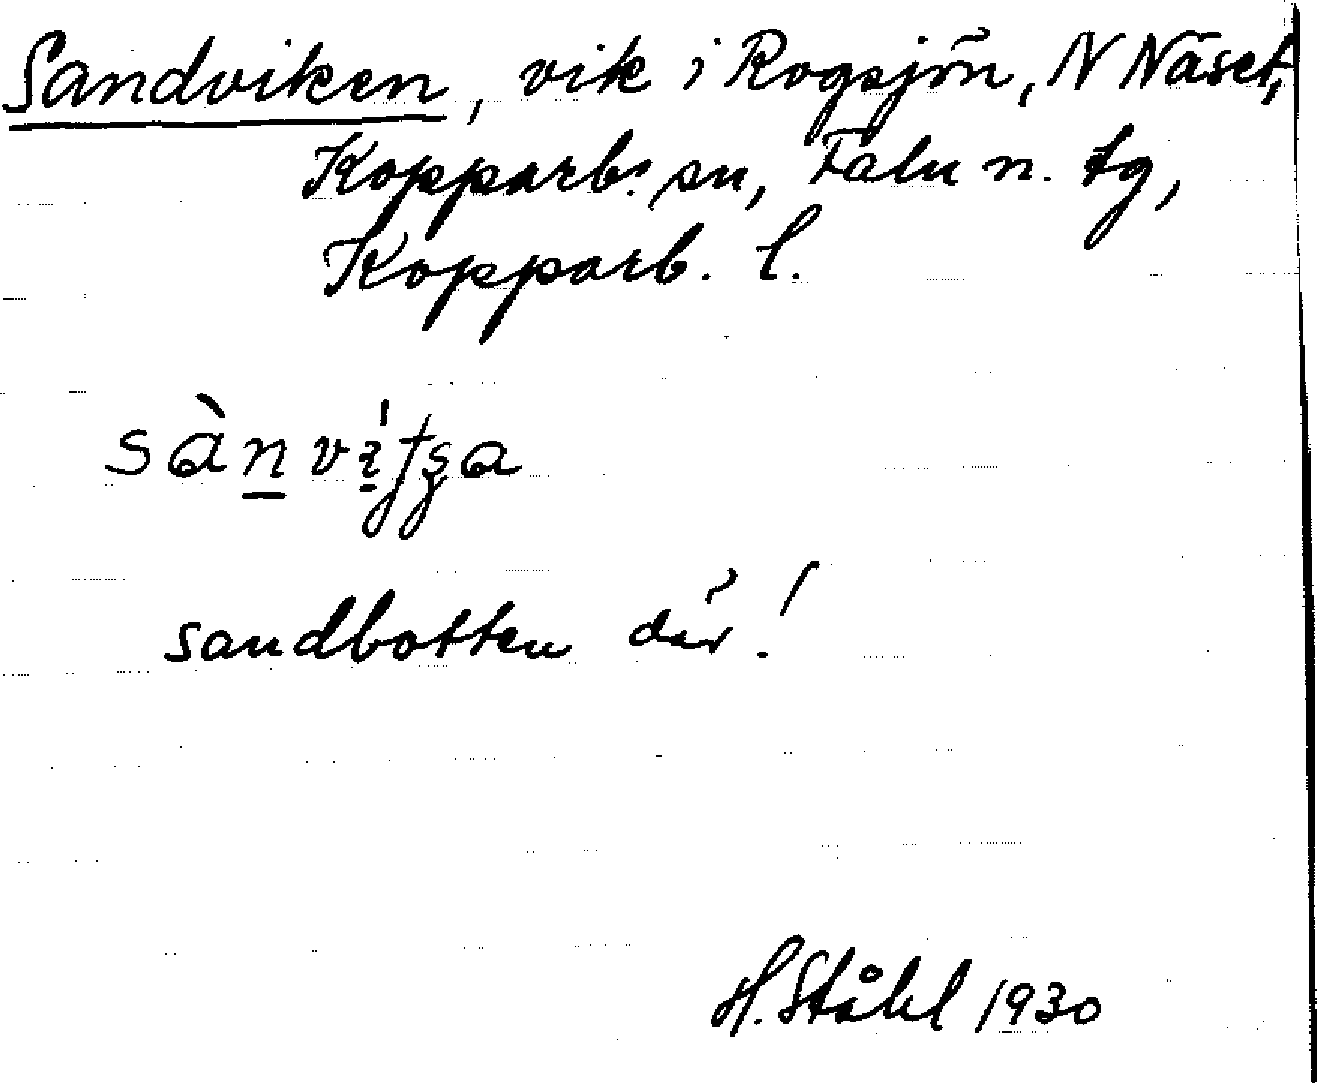 Sandviken, vik i Rogsjön, N Näset,
Kopparb:s sn, Falu n. tg,
Kopparb. l.
sandbotten där!
H. Ståhl 1930